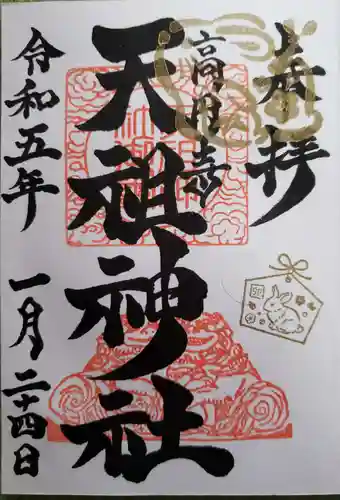 奉拝
高円寺
天祖神社
令和五年
一月二十四日